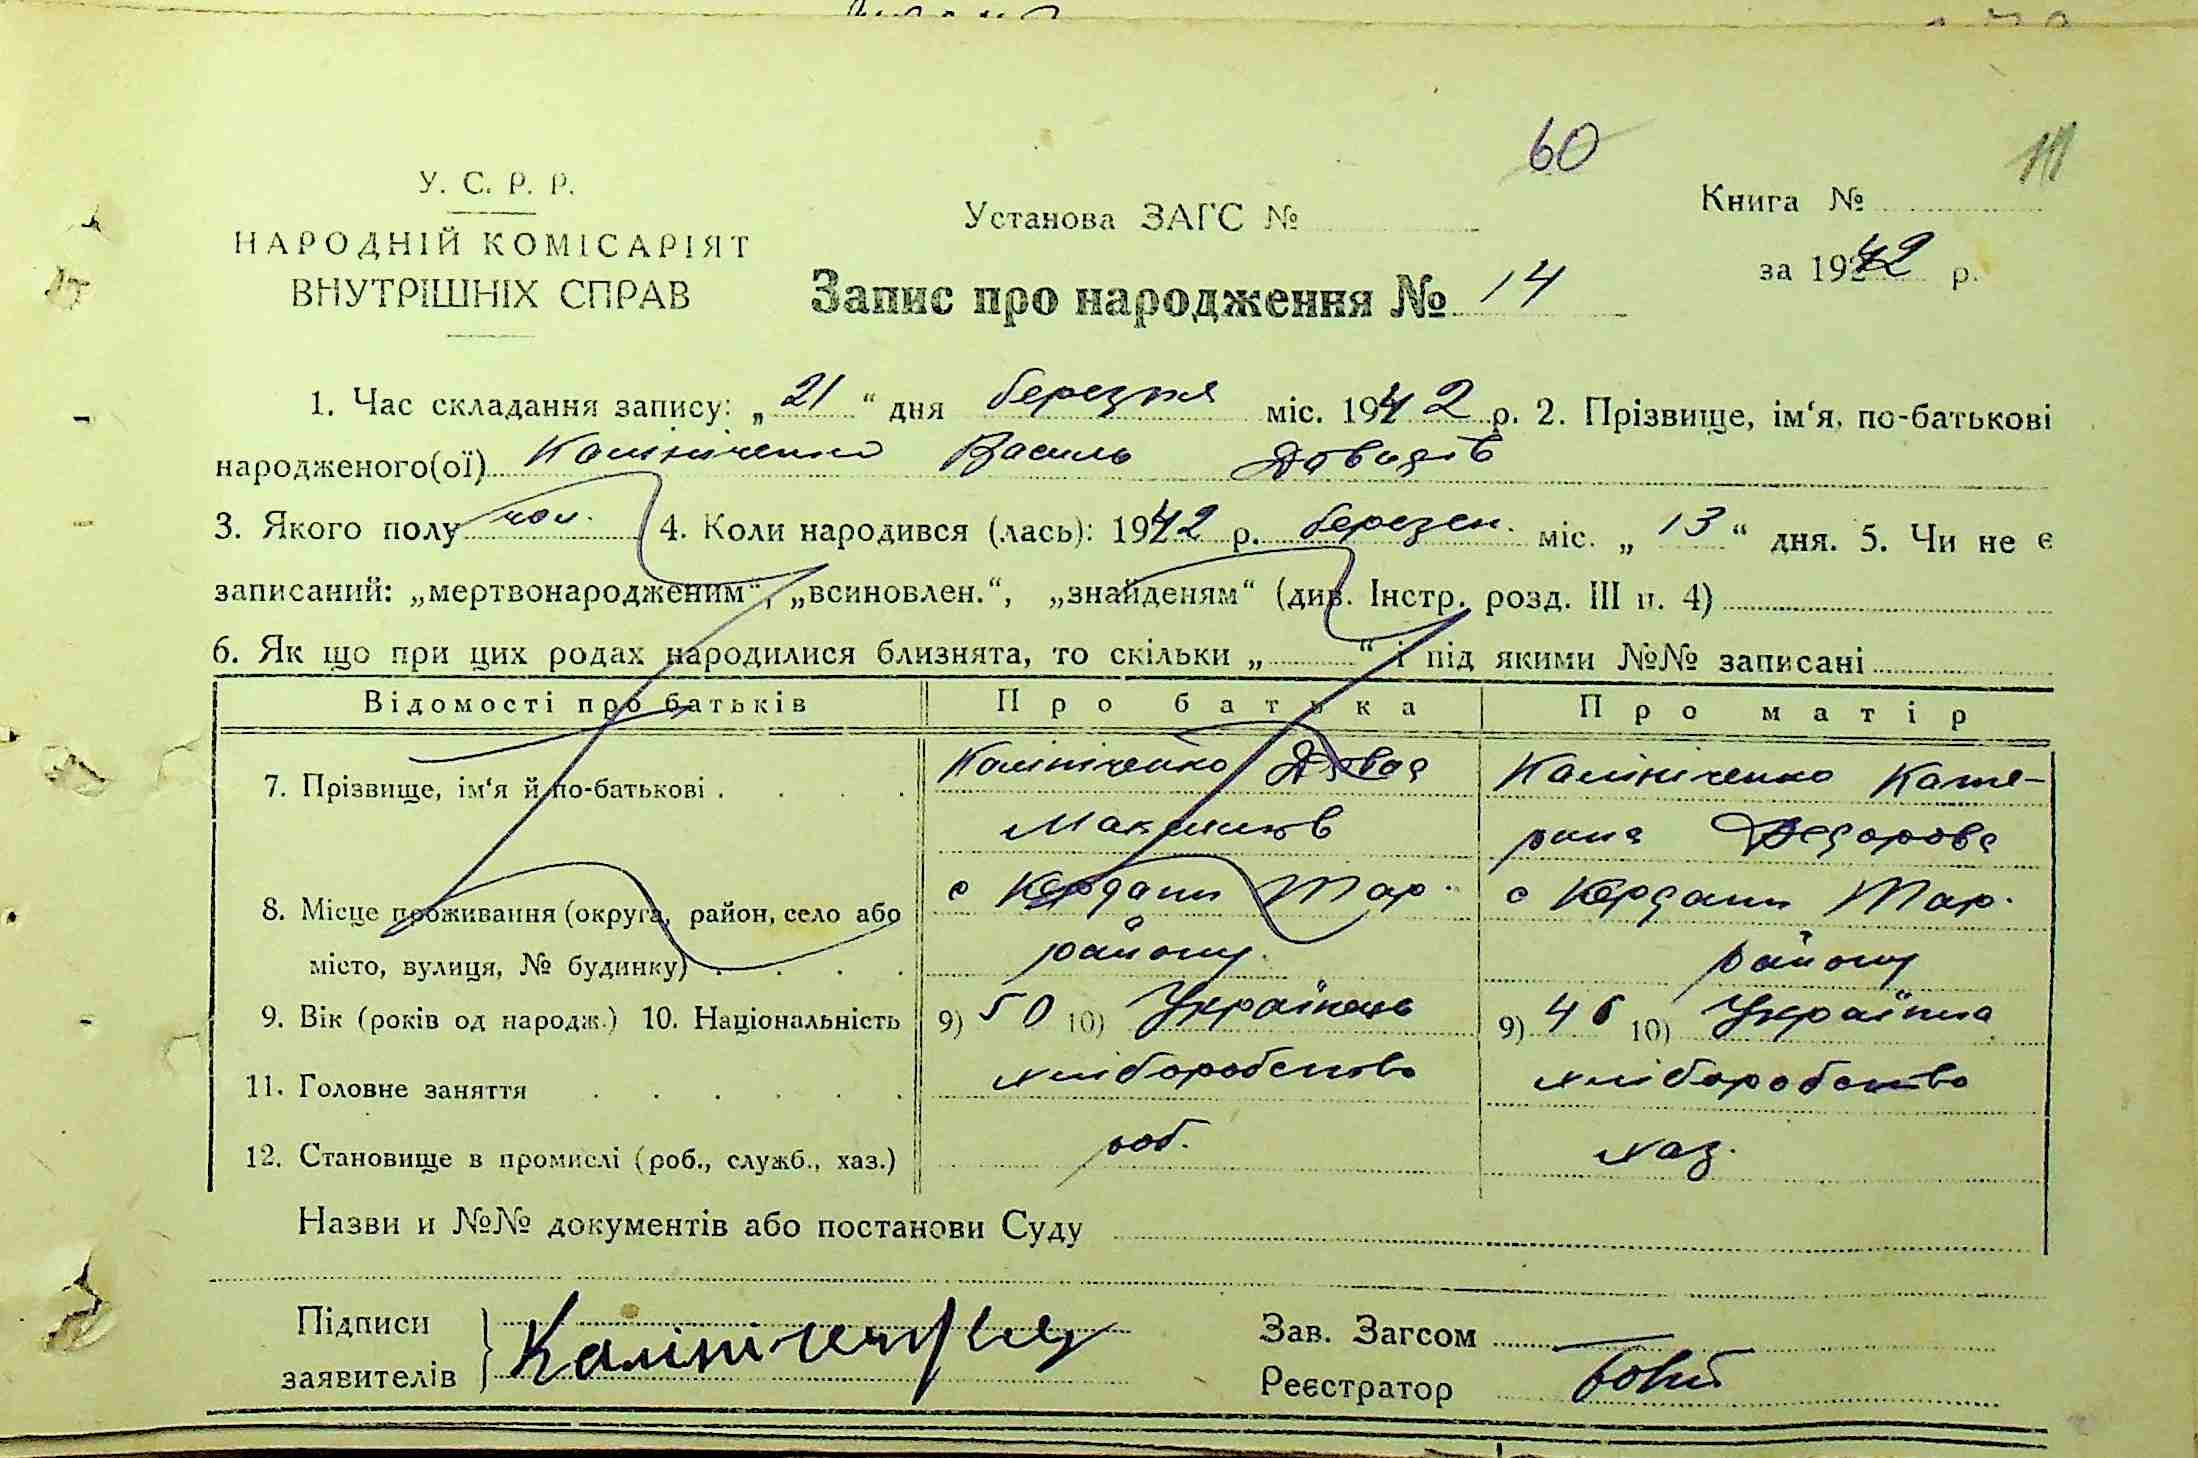 60
У. С. Р. Р.
НАРОДНІЙ КОМІСАРІЯТ
ВНУТРІШНІХ СПРАВ
Установа ЗАГС №
Книга №
за 1942 р.
Запис про народження № 14
1. Час складання запису: „ 21 “ дня березня міс. 1942 р. 2. Прізвище, ім‘я, по-батькові
народженого(ої) Калініченко Василь Давидів
3. Якого полу чол. 4. Коли народився (лась): 1942 р. березен. міс. „ 13 “ дня. 5. Чи не є
записаний: „мертвонародженим“, „всиновлен.“, „знайденям“ (див. Інстр. розд. III п. 4)
6. Як що при цих родах народилися близнята, то скільки „ “ і під якими №№ записані
Відомості про батьків Про батька Про матір
7. Прізвище, ім‘я й по-батькові . Калініченко Давид Калініченко Кате-
рина Федорова
8. Місце проживання (округа, район, село або с Кердани Тар. с Кердани Тар.
місто, вулиця, № будинку) . району. району
9. Вік (років од народж.) 10. Національність 9) 50 10) Українець 9) 46 10) Українка
11. Головне заняття хліборобство хліборобство
12. Становище в промислі (роб., служб., хаз.) роб. хаз.
Назви и №№ документів або постанови Суду
Підписи
заявителів
Зав. Загсом
Реєстратор